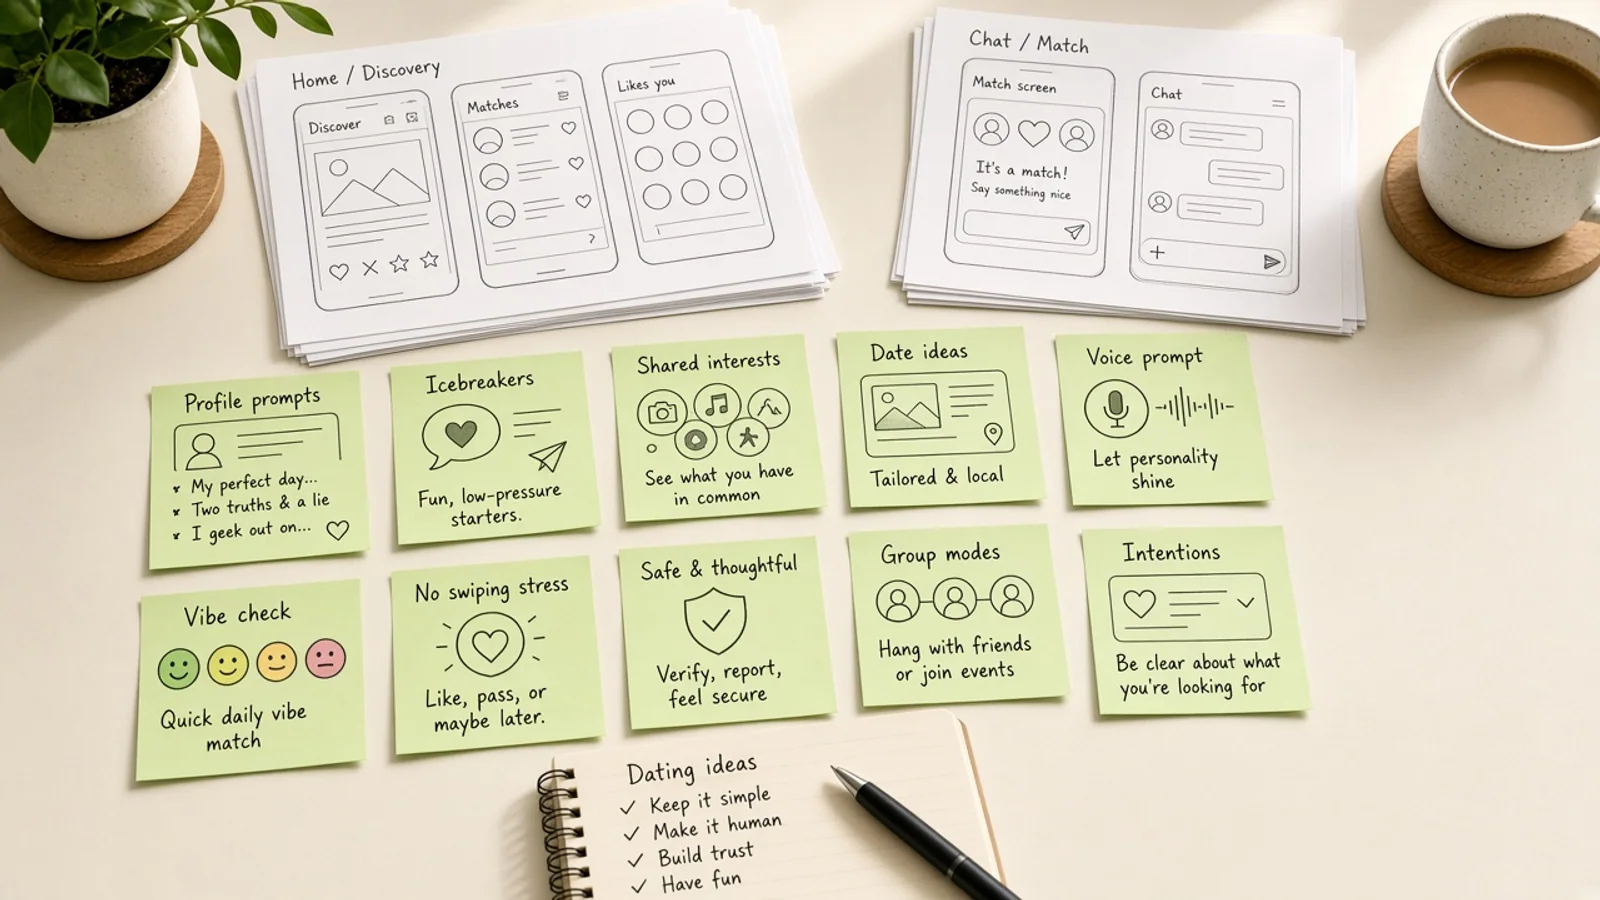 Home / Discovery
Discover
Matches
Likes you
Chat / Match
Match screen
It's a match!
Say something nice
Chat
Profile prompts
My perfect day...
Two truths & a lie
I geek out on...
Icebreakers
Fun, low-pressure
starters.
Shared interests
See what you have
in common
Date ideas
Tailored & local
Voice prompt
Let personality
shine
Vibe check
Quick daily vibe
match
No swiping stress
Like, pass, or
maybe later.
Safe & thoughtful
Verify, report,
feel secure
Group modes
Hang with friends
or join events
Intentions
Be clear about what
you're looking for
Dating ideas
✓ Keep it simple
✓ Make it human
✓ Build trust
✓ Have fun